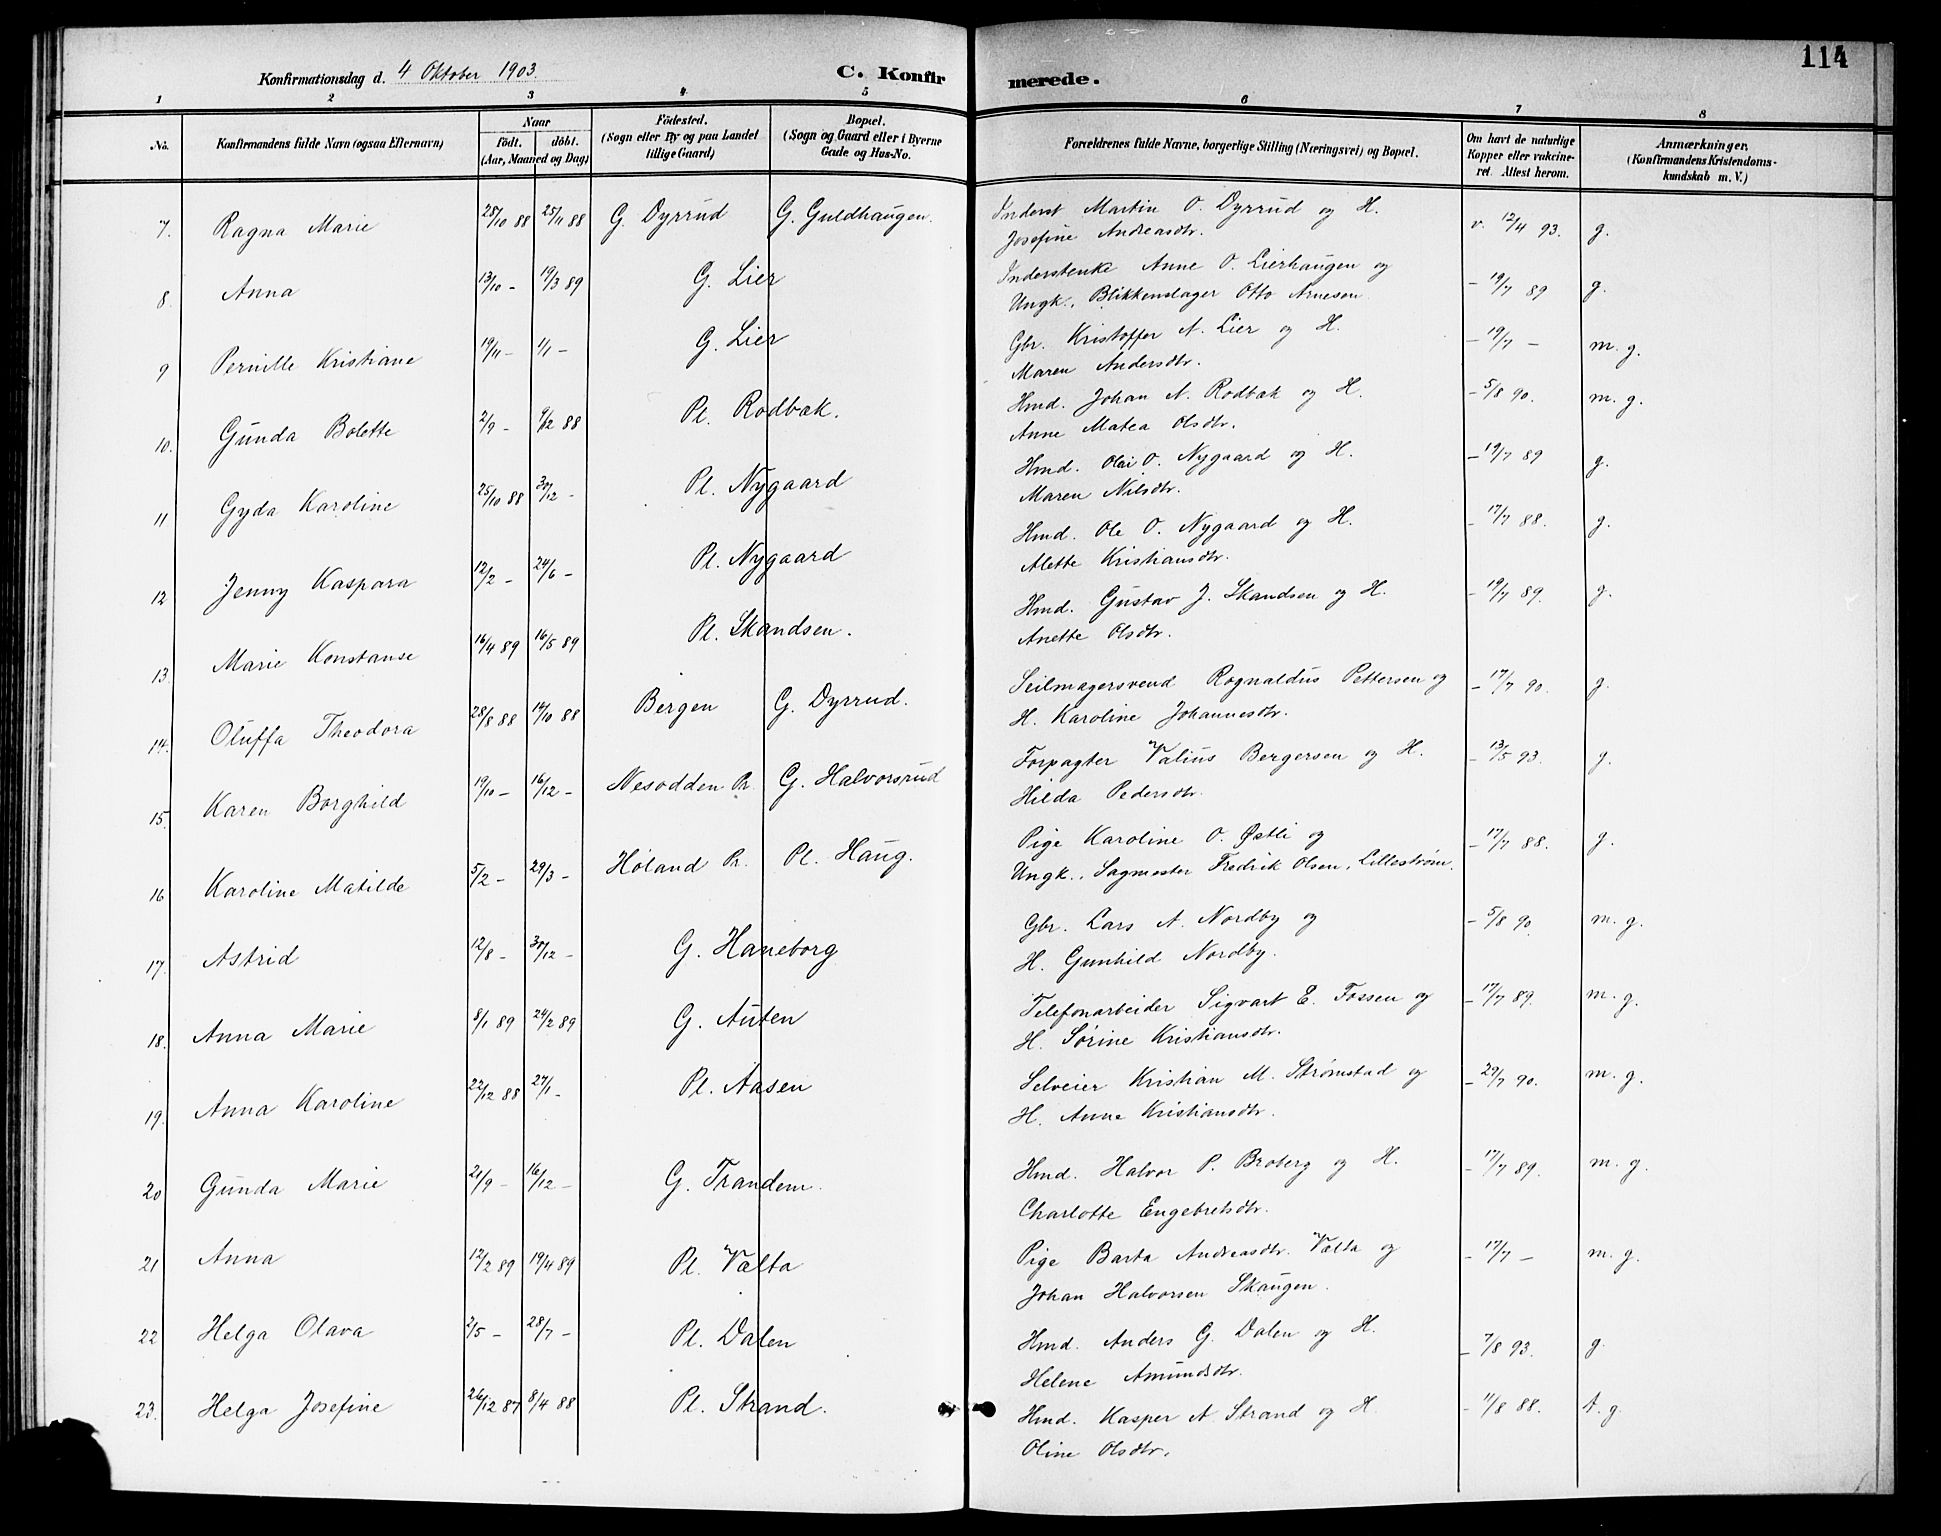 114
Konfirmationsdag d. 4 Oktober 1903.
C. Konfirmerede.
1 2 3 4 5 6 7 8
No. Konfirmandens fulde Navn (ogsaa Efternavn) Naar födt. döbt. (Aar, Maaned og Dag) Födested. (Sogn eller By og paa Landet tillige Gaard) Bopæl. (Sogn og Gaard eller i Byerne Gade og Hus-No. Forældrenes fulde Navne, borgerlige Stilling (Næringsvei) og Bopæl. Om havt de naturlige Kopper eller vakcineret. Attest herom. Anmærkninger. (Konfirmandens Kristendomskundskab m. V.)
7. Ragna Marie 25/10 88 25/11 88 G. Dyrrud G. Guldhaugen. Inderst Martin O. Dyrrud og H. v. 12/4 93. g.
Josefine Andreasdtr.
8. Anna 13/10 - 19/3 89 G. Lier Inderstenke Anne O. Lierhaugen og - 19/7 89 g.
Ungk. Blikkenslager Otto Arnesen
9 Pernille Kristiane 19/11 - 1/1 - G. Lier Gbr. Kristoffer A. Lier og H. - 19/7 - m. g.
Maren Andersdtr.
10. Gunda Bolette 2/9 - 9/12 88 Pl. Rodbak. Hmd. Johan N. Rodbak og H. - 5/8 90. m. g.
Anne Matea Olsdtr.
11 Gyda Karoline 25/10 88 30/12 - Pl. Nygaard Hmd. Olai O. Nygaard og H. - 19/7 89 g.
Maren Nilsdtr.
12 Jenny Kaspara 12/2 - 24/6 - Pl. Nygaard Hmd. Ole O. Nygaard og H. - 17/7 88. g.
Alette Kristiansdtr.
13. Marie Konstanse 16/4 89 16/5 89 Pl. Skandsen. Hmd. Gustav J. Skandsen og H. - 19/7 89. g.
Anette Olsdtr.
14. Oluffa Theodora 28/8 88 14/10 88 Bergen G. Dyrrud. Seilmagersvend Rognaldus Pettersen og - 17/7 90. g.
H. Karoline Johannesdtr.
15. Karen Borghild 19/10 - 16/12 - Nesodden Pr. G. Halvorsrud Forpagter Valius Bergersen og H. - 13/5 93. g.
Hilda Pedersdtr.
16 Karoline Matilde 5/2 - 29/3 - Höland Pr. Pl. Haug. Pige Karoline O. Østli og - 17/7 88. g.
Ungk. Sagmester Fredrik Olsen, Lillestrøm.
17. Astrid 12/8 - 30/12 - G. Haneborg Gbr. Lars A. Nordby og - 5/8 90. m. g.
H. Gunhild Nordby.
18. Anna Marie 8/1 89 24/2 89 G. Auten Telefonarbeider Sigvart E. Fossen og - 17/7 89. m. g.
H. Sørine Kristiansdtr.
19. Anna Karoline 22/12 88 27/1 - Pl. Aasen Selveier Kristian M. Strømstad og - 29/7 90. m. g.
H. Anne Kristiansdtr.
20 Gunda Marie 21/9 - 16/12 - G. Trandem. Hmd. Halvor P. Broberg og H. - 17/7 89. m. g.
Charlotte Engebretsdtr.
21 Anna 12/2 89 19/4 89 Pl. Vælta Pige Barta Andreasdtr. Vælta og - 17/7 - m. g.
Johan Halvorsen Skaugen.
22 Helga Olava 2/5 - 28/7 - Pl. Dalen Hmd. Anders G. Dalen og H. - 7/8 93. g.
Helene Amundsdtr.
23. Helga Josefine 26/12 87 8/4 88 Pl. Strand. Hmd. Kasper A. Strand og H. - 11/8 88. t. g.
Oline Olsdtr.